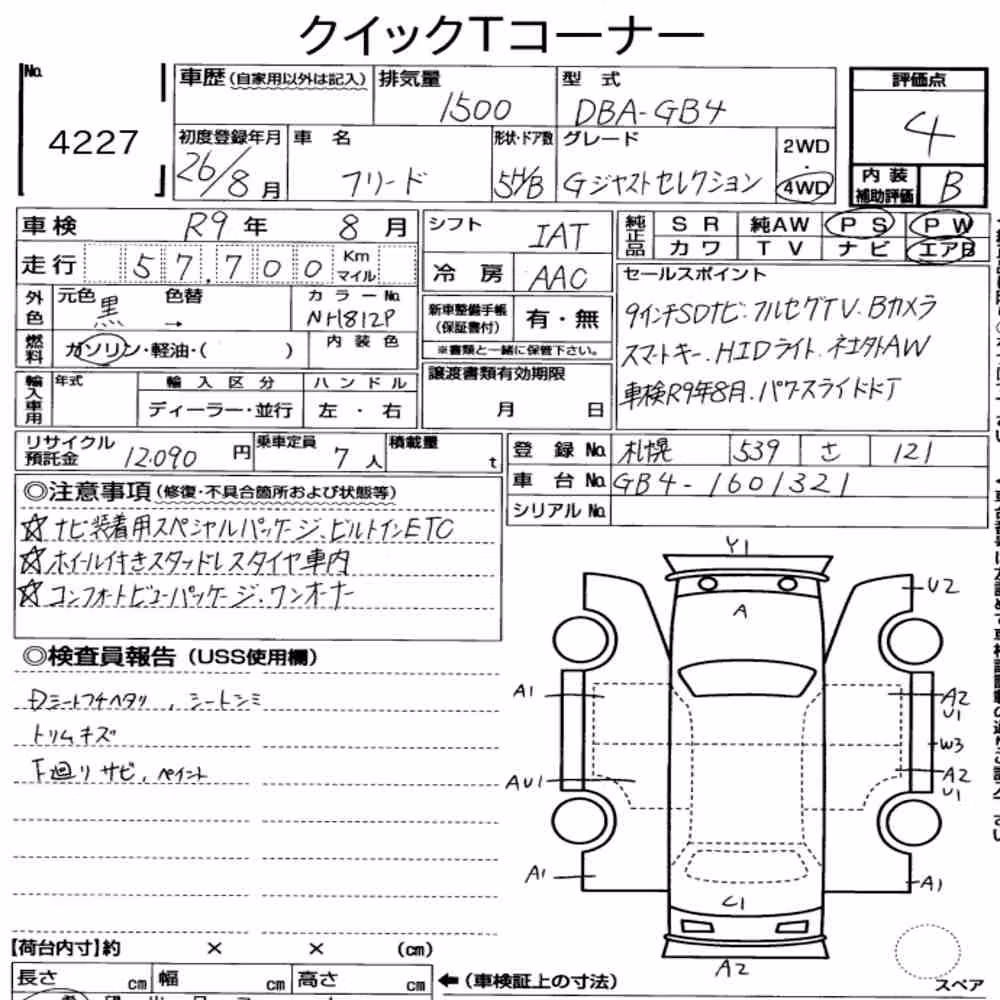 クイックTコーナー
No. 4227
車歴 (自家用以外は記入)
排気量 1500
型式 DBA-GB4
評価点 4
初度登録年月 26/8月
車名 フリード
形状・ドア数 5H/B
グレード Gジャストセレクション
2WD・4WD
内装補助評価 B
車検 R9年 8月
シフト IAT
純正品 SR 純AW PS PW
カワ TV ナビ エアB
走行 57,700 Km マイル
冷房 AAC
セールスポイント
9インチSDナビ.フルセグTV.Bカメラ
スマートキー.HIDライト.ネ土外AW
車検R9年8月.パワースライドドア
外色 元色 黒 色替 →
カラーNo. NH812P
新車整備手帳(保証書付) 有・無
※書類と一緒に保管下さい。
燃料 ガソリン・軽油・( )
内装色
輸入車用 年式 輸入区分 ハンドル
ディーラー・並行 左・右
譲渡書類有効期限
月 日
リサイクル預託金 12.090円
乗車定員 7人
積載量 t
登録No. 札幌 539 さ 121
車台No. GB4-1601321
シリアルNo.
◎注意事項 (修復・不具合箇所および状態等)
☆ナビ装着用スペシャルパッケージ、ビルトインETC
☆ホイール付きスタッドレスタイヤ車内
☆コンフォートビューパッケージ.ワンオーナー
◎検査員報告 (USS使用欄)
Dシートフチヘタリ、シートシミ
トリムキズ
下廻りサビ、ペイント
Y1
A
U2
A1
A2
U1
W3
AU1
A2
U1
A1
A1
C1
A2
スペア
【荷台内寸】約 × × (cm)
長さ cm 幅 cm 高さ cm
←(車検証上の寸法)